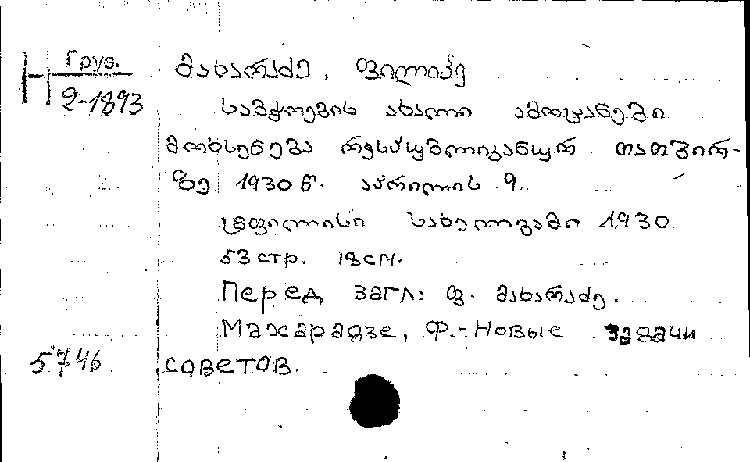 Н Груз.
2-1893
მახარაძე, ფილიპე
საბჭოების ახალი ამოცანები
მოხსენება რესპუბლიკანურ თათბირ-
ზე 1930 წ. აპრილის 9.
ტფილისი სახელგამი 1930
53 стр. 18см.
Перед загл: ფ. მახარაძე.
Махарадзе, Ф.-Новые задачи
5746 советов.